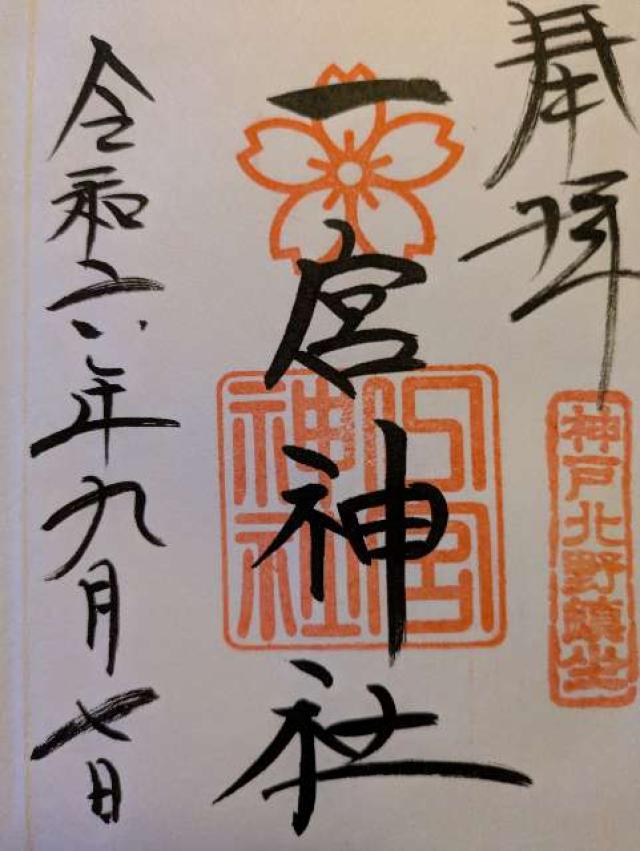 奉拝
神戸北野鎮坐
一宮神社
一宮神社
令和六年九月七日